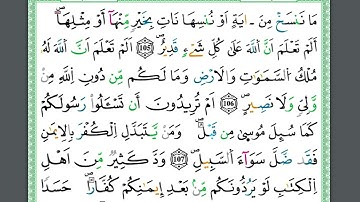 مَا نَنسَخْ مِنَ ـ ايَةٍ اَوْ نُنسِهَا نَاتِ بِخَيْرٍ مِّنْهَآ أَوْ مِثْلِهَآ
أَلَمْ تَعْلَمَ اَنَّ اَللَّهَ عَلَىٰ كُلِّ شَےْءٍ قَدِيرٌ 105 أَلَمْ تَعْلَمَ اَنَّ اَللَّهَ لَهُۥ
مُلْكُ اُلسَّمَٰوَٰتِ وَالَارْضِ وَمَا لَكُم مِّن دُونِ اِللَّهِ مِنْ
وَّلِيٍّ وَلَا نَصِيرٍ 106 اَمْ تُرِيدُونَ أَن تَسْـَٔلُواْ رَسُولَكُمْ
كَمَا سُئِلَ مُوسۭىٰ مِن قَبْلُ وَمَنْ يَّتَبَدَّلِ اِلْكُفْرَ بِالِايمَٰنِ
فَقَد ضَّلَّ سَوَآءَ اَلسَّبِيلِ 107 وَدَّ كَثِيرٌ مِّنَ اَهْلِ
اِلْكِتَٰبِ لَوْ يَرُدُّونَكُم مِّنۢ بَعْدِ إِيمَٰنِكُمْ كُفَّارًا حَسَدًا